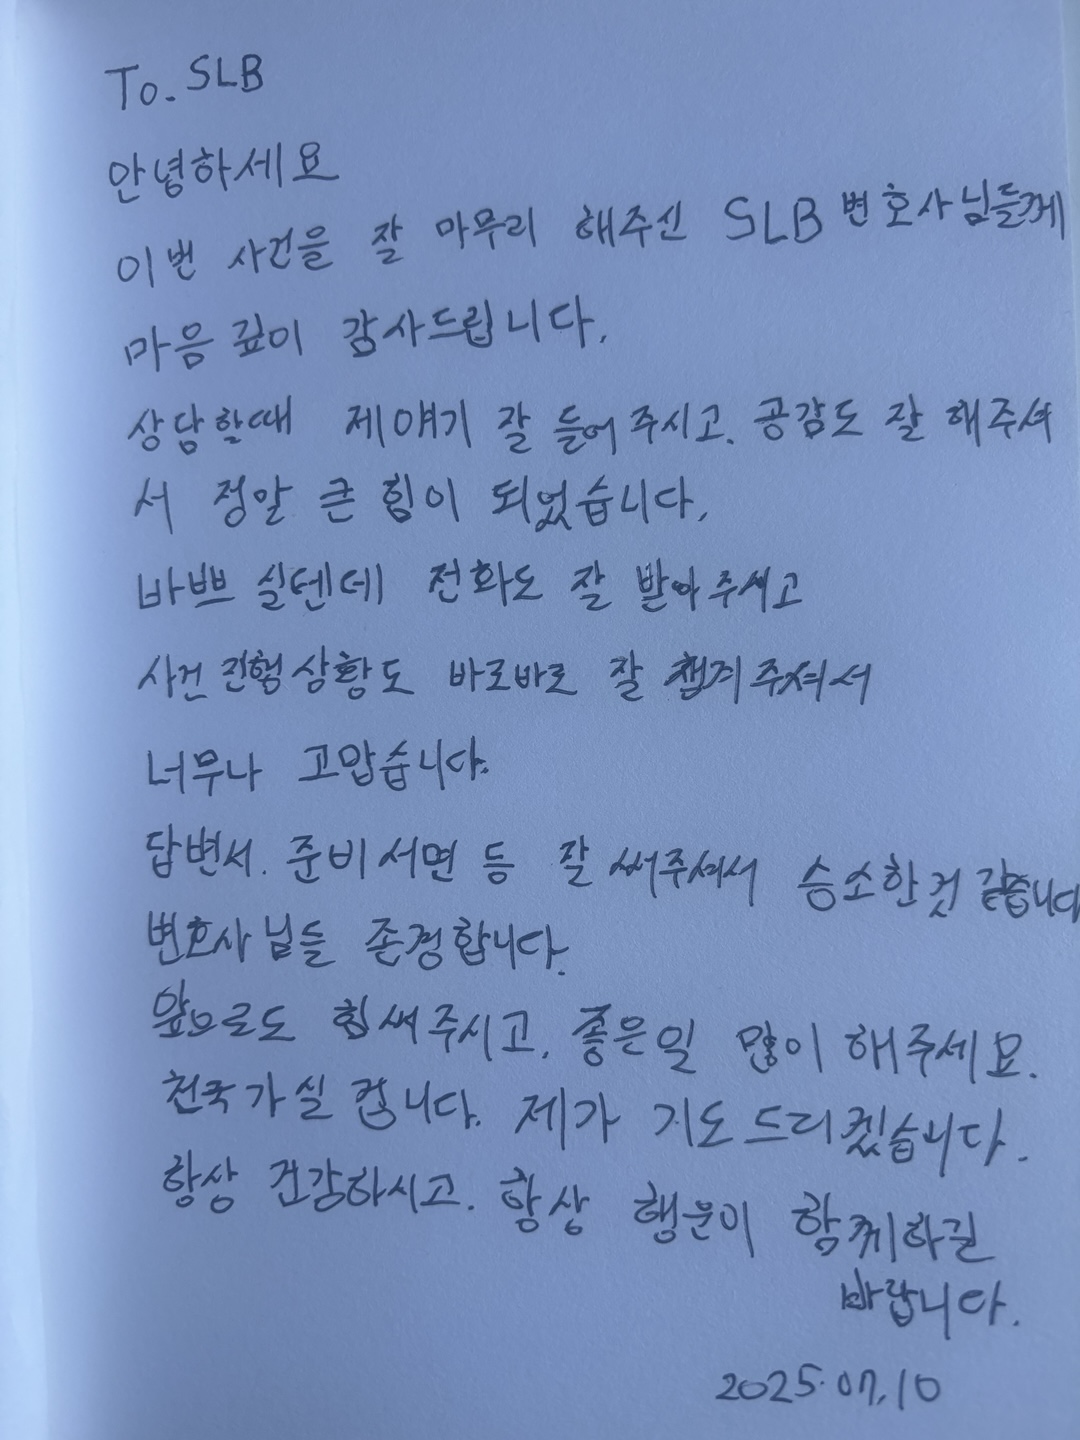 To. SLB
안녕하세요
이번 사건을 잘 마무리 해주신 SLB 변호사님들께
마음 깊이 감사드립니다.
상담할때 제얘기 잘 들어주시고. 공감도 잘 해주셔
서 정말 큰 힘이 되었습니다.
바쁘실텐데 전화도 잘 받아주시고
사건 진행상황도 바로바로 잘 챙겨주셔서
너무나 고맙습니다.
답변서. 준비서면 등 잘 써주셔서 승소한것 같습니다
변호사님들 존경합니다.
앞으로도 힘써주시고. 좋은일 많이 해주세요.
천국가실 겁니다. 제가 기도드리겠습니다.
항상 건강하시고. 항상 행운이 함께하길
바랍니다.
2025.07.10